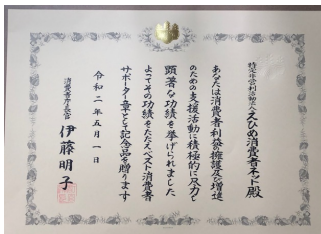 特定非営利活動法人えひめ消費者ネット殿
あなたは消費者利益の擁護及び増進
のための支援活動に積極的に尽力し
顕著な功績を挙げられました
よってその功績をたたえベスト消費者
サポーター章として記念品を贈ります
令和二年五月一日
消費者庁長官 伊藤明子